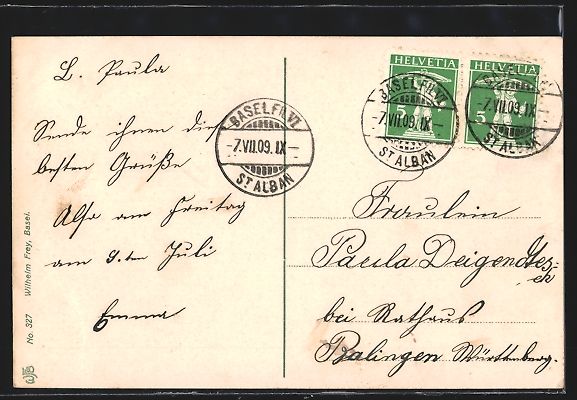 L. Paula
Sende ihnen die
besten Grüße
Also am Freitag
am 9.ten Juli
Emma
No. 327 Wilhelm Frey, Basel.
HELVETIA
HELVETIA
5
BASEL FIL. VI
-7.VII.09.IX-
ST ALBAN
BASEL FIL. VI
-7.VII.09.IX-
ST ALBAN
-7.VII.09.IX-
ST ALBAN
Fräulein
Paula Deigend
bei Rathaus
Balingen Württemberg.